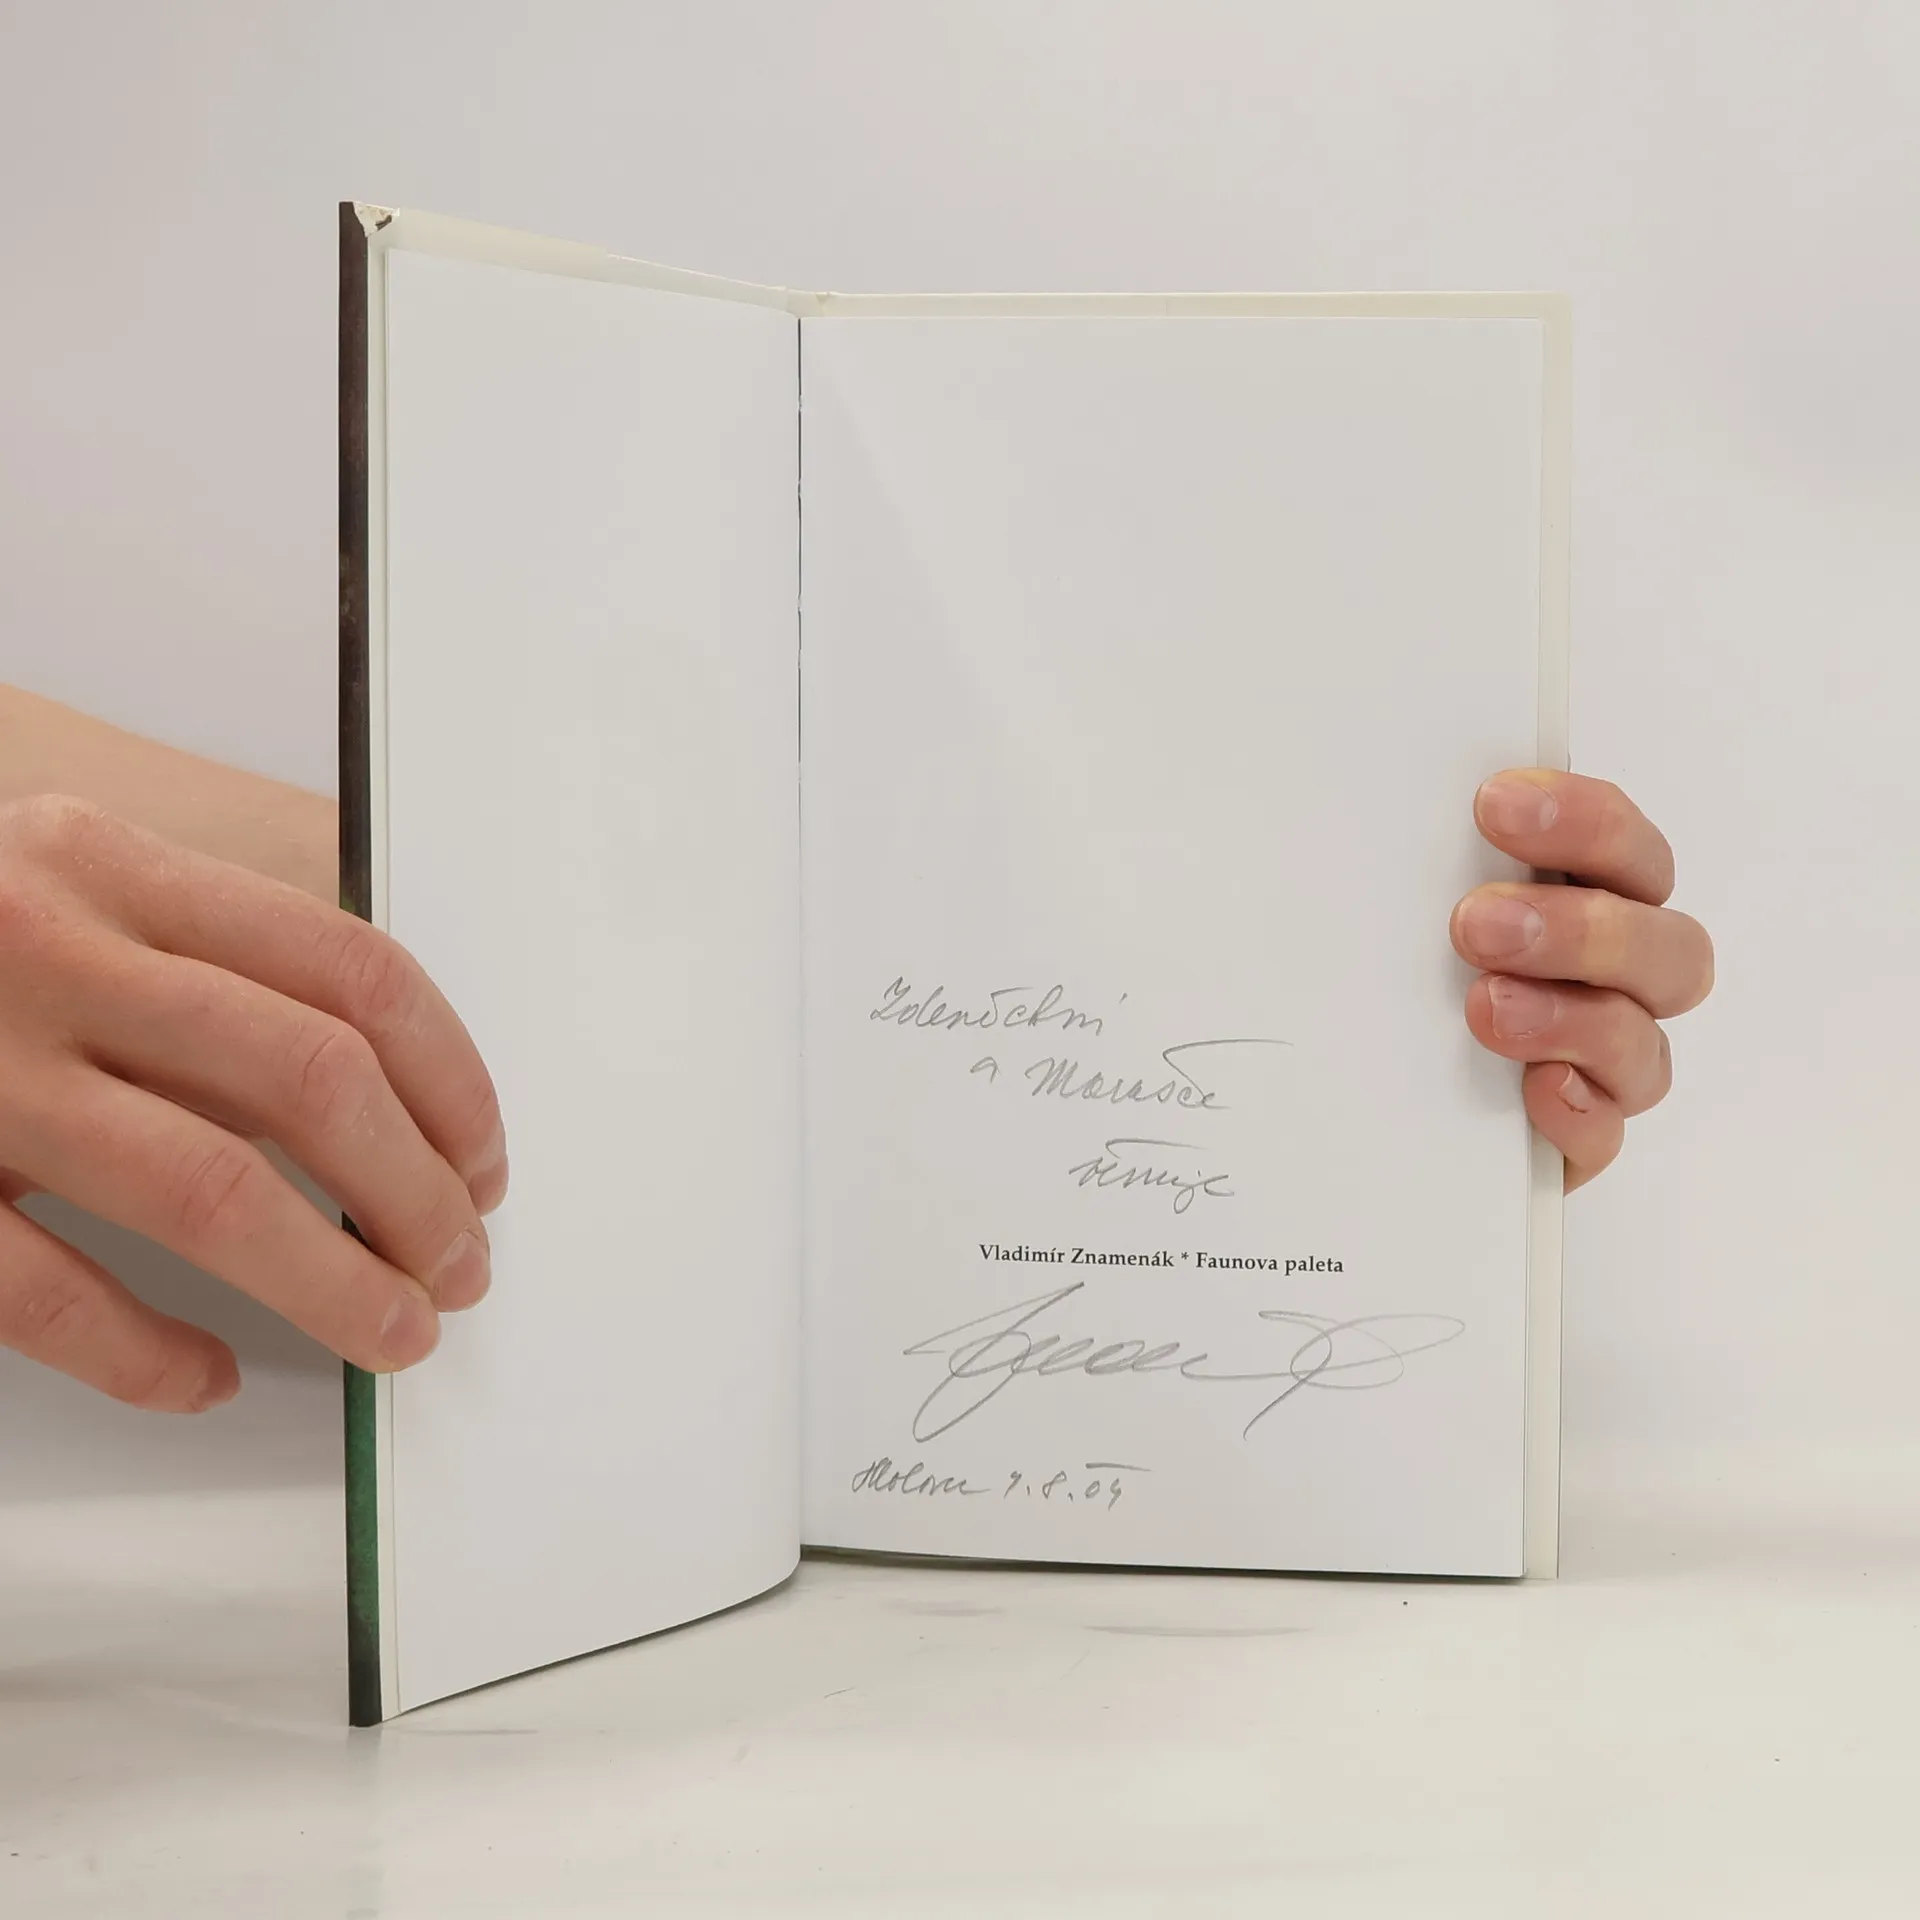 Zdeněčkovi
a Marušce
věnuje
Vladimír Znamenák * Faunova paleta
7.8.04